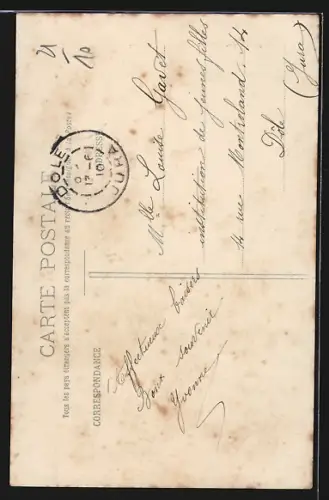 CARTE POSTALE
Tous les pays étrangers n'acceptent pas la correspondance au recto
CORRESPONDANCE
DOLE
JURA
17-6
10
Affectueux baisers
Bon souvenir
Yvonne
Mlle Louise Gavet
institution de jeunes filles
14 rue Montroland, 14
Dôle
(Jura)